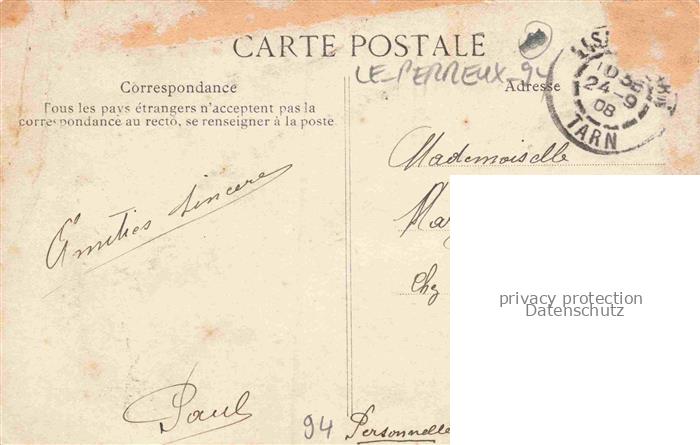 CARTE POSTALE
LE-PERREUX-94
Correspondance
Tous les pays étrangers n'acceptent pas la
correspondance au recto, se renseigner à la poste
Adresse
24-9
08
TARN
Mademoiselle
Amitiés sincères
Chez
privacy protection
Datenschutz
Paul
94
Personnelle